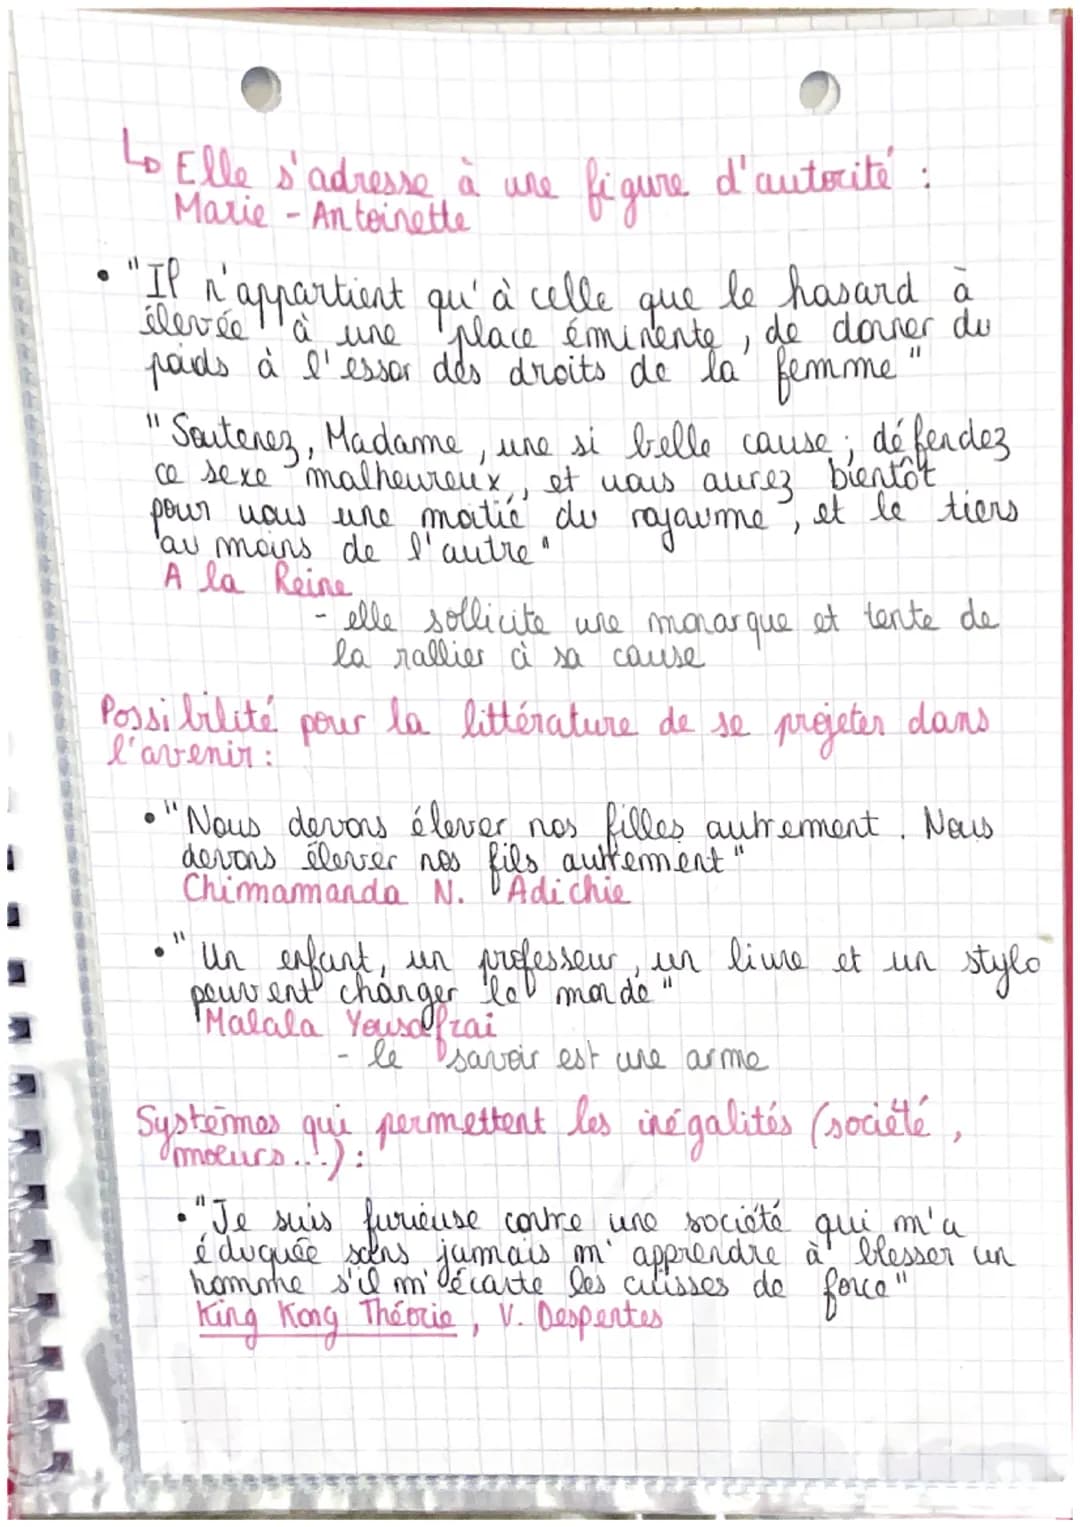 ↳ Elle s'adresse à une figure d'autorité :
Marie - Antoinette
• "Il n'appartient qu'à celle que le hasard à
élevée à une place éminente, de donner du
poids à l'essor des droits de la femme"
"Soutenez, Madame, une si belle cause ; défendez
ce sexe malheureux, et vous aurez bientôt
pour vous une moitié du royaume, et le tiers
au moins de l'autre"
A la Reine
- elle sollicite une monarque et tente de
la rallier à sa cause
Possibilité pour la littérature de se projeter dans
l'avenir :
• "Nous devons élever nos filles autrement. Nous
devons élever nos fils autrement"
Chimamanda N. Adichie
• "Un enfant, un professeur, un livre et un stylo
peuvent changer le monde"
Malala Yousafzai
- le savoir est une arme
Systèmes qui permettent les inégalités (société,
moeurs...) :
• "Je suis furieuse contre une société qui m'a
éduquée sans jamais m'apprendre à blesser un
homme s'il m'écarte les cuisses de force"
King Kong Théorie, V. Despentes